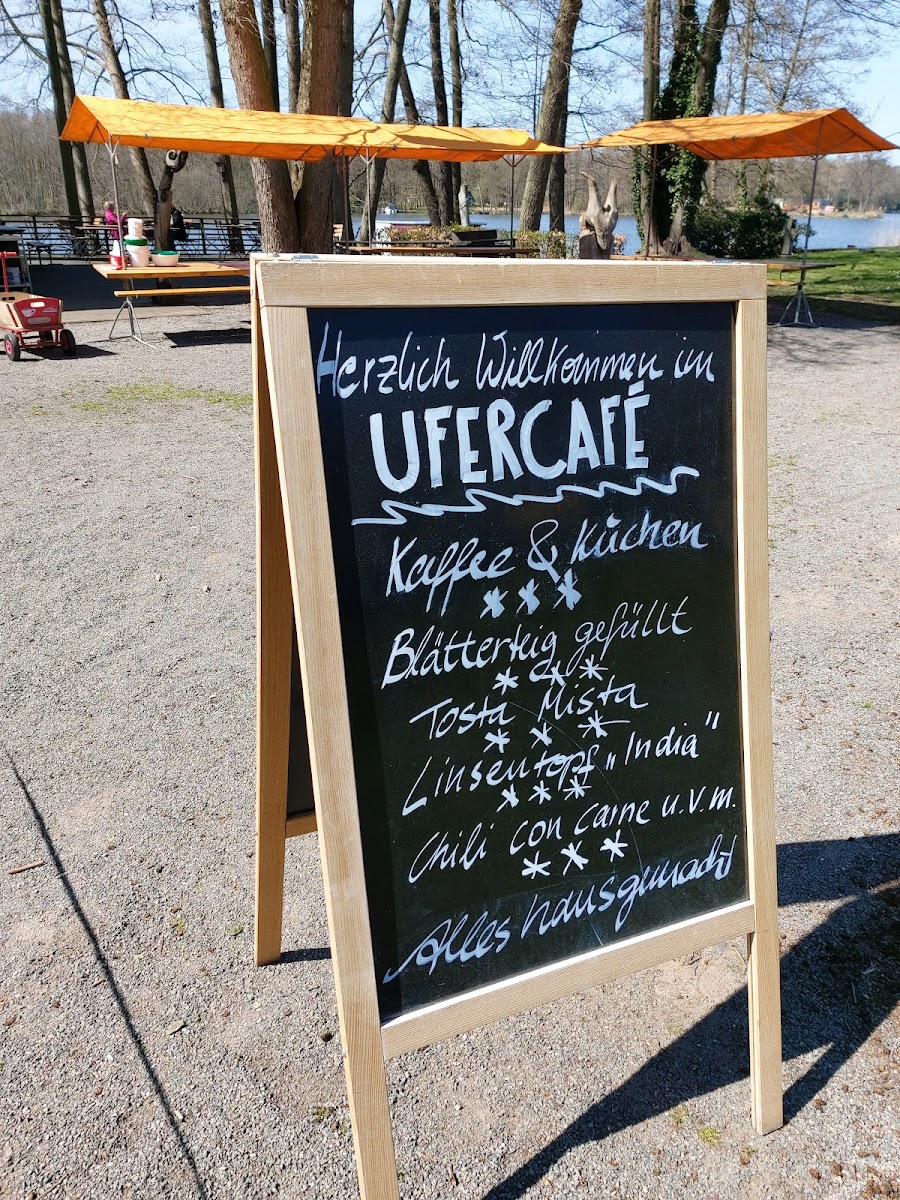 Herzlich Willkommen im
UFERCAFÉ
Kaffee & Kuchen
* * *
Blätterteig gefüllt
* * *
Tosta Mista
* * *
Linsentopf „India"
* * *
Chili con carne u.v.m.
* * *
Alles hausgemacht